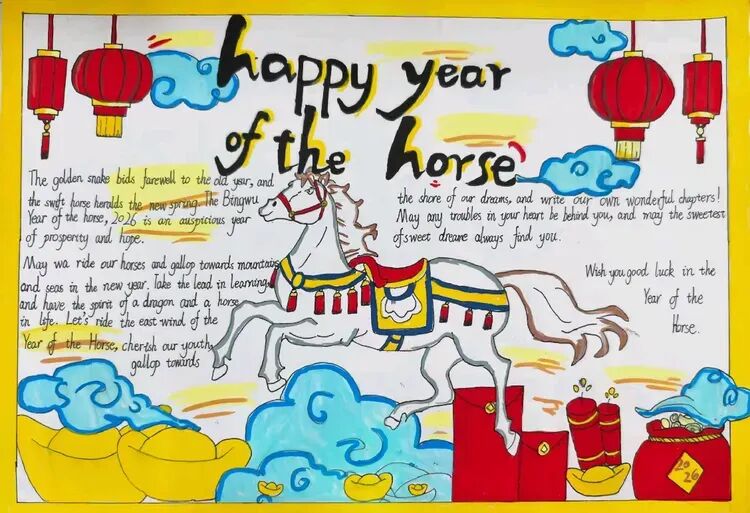 happy year
of the horse
The golden snake bids farewell to the old year, and
the swift horse heralds the new spring. The Bingwu
Year of the horse, 2026 is an auspicious year
of prosperity and hope.
May wa ride our horses and gallop towards mountains
and seas in the new year. lake the lead in learning
and have the spirit of a dragon and a horse
in life. Let's ride the east wind of the
Year of the Horse, cherish our youth,
gallop towards
the shore of our dreams, and write our own wonderful chapters!
May any troubles in your heart be behind you, and may the sweetest
of sweet dreame always find you.
Wish you good luck in the
Year of the
Horse.
2026